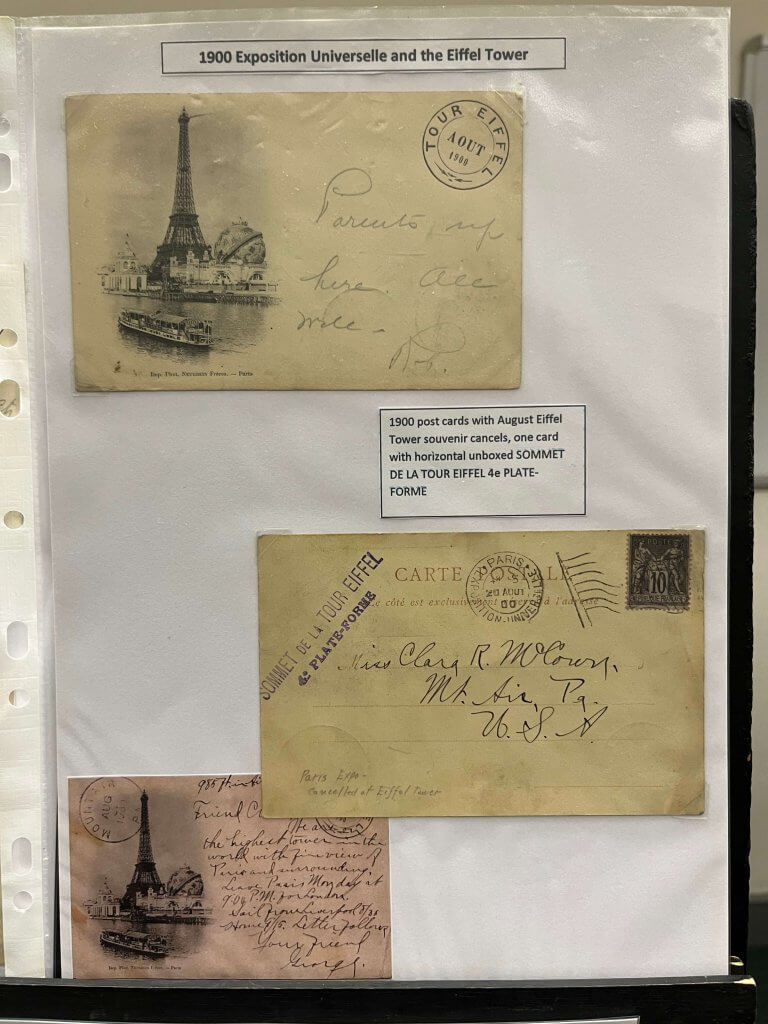 1900 Exposition Universelle and the Eiffel Tower
TOUR EIFFEL
AOUT
1900
Parents up
here. All
well -
Rob.
Imp. Phot. Neurdein Frères. — Paris
1900 post cards with August Eiffel
Tower souvenir cancels, one card
with horizontal unboxed SOMMET
DE LA TOUR EIFFEL 4e PLATE-
FORME
SOMMET DE LA TOUR EIFFEL
4e PLATE-FORME
CARTE
PARIS
AOUT
00
POSTES
10
Ce côté est exclusivement réservé à l'adresse
Miss Clara R. McCowry,
Mt. Air, Pa.
U.S.A
Paris Expo-
Cancelled at Eiffel Tower
MOUNT AIR
AUG
PA
985 ft in air
Friend C
We are on
the highest tower in the
world with fine view of
Paris and surrounding.
Leave Paris Monday at
9.04 P.M. for London.
Sail from Liverpool
Letter follows
Your friend
George.
Imp. Phot. Neurdein Frères. — Paris